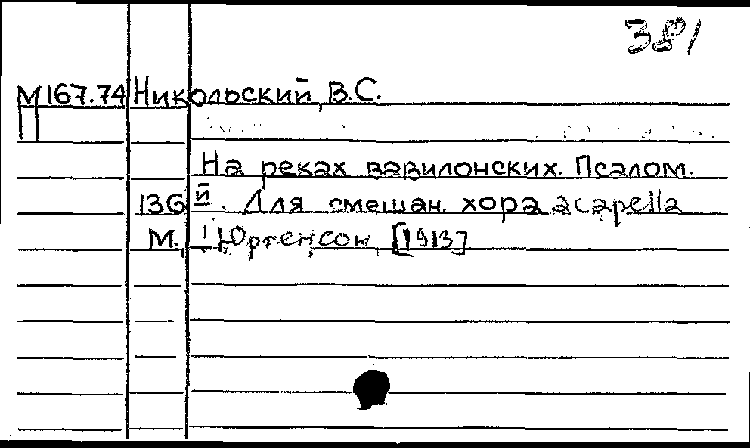 381
М167.74 Никольский, В.С.
П
На реках вавилонских. Псалом.
136й. Для смешан. хора acapella
М., Юргенсон, [1913]